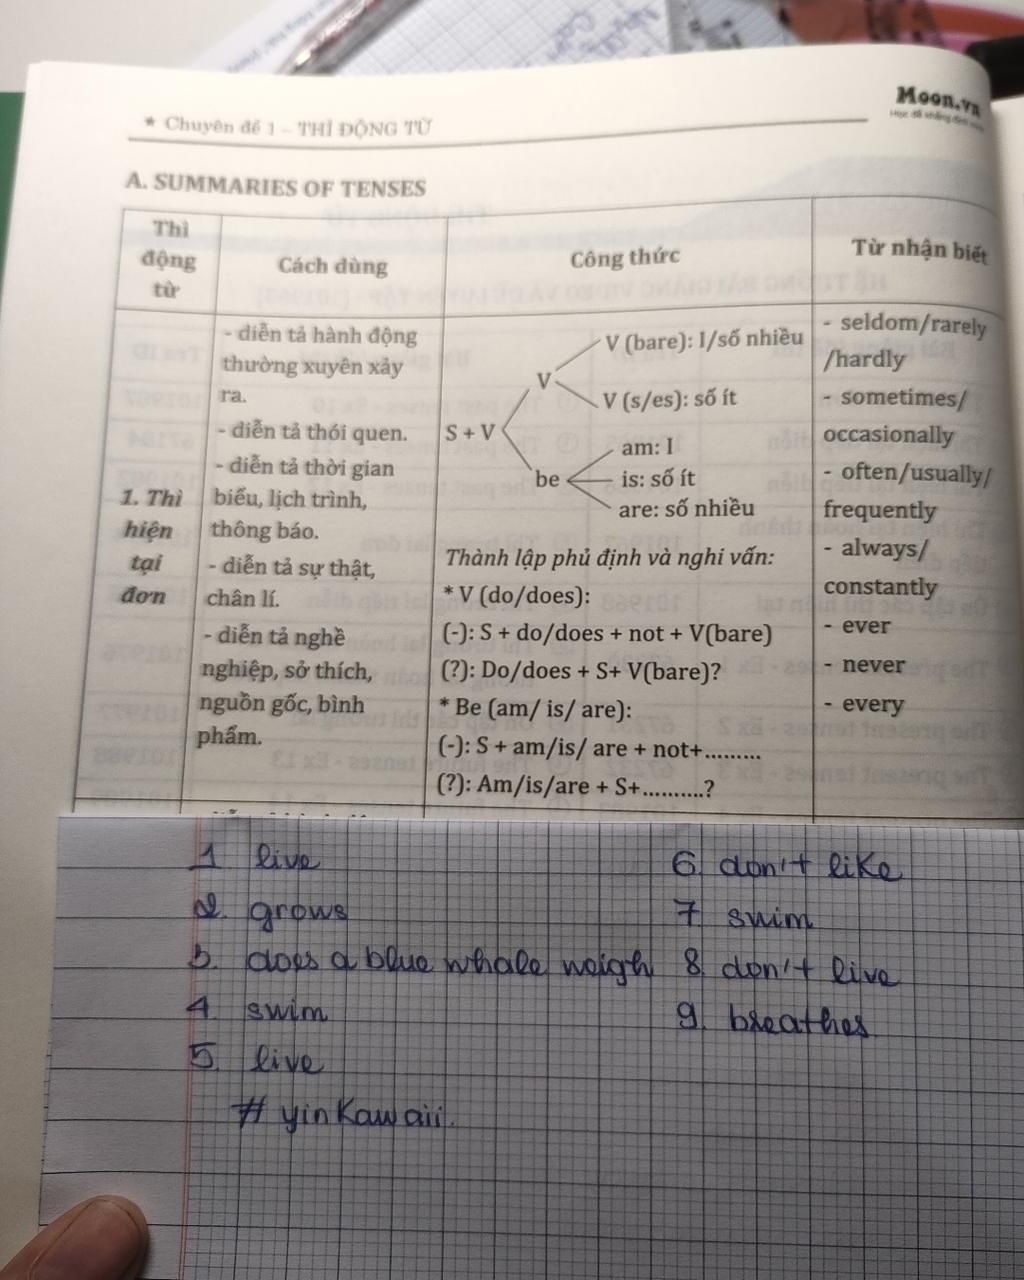 * Chuyên đề 1 – THÌ ĐỘNG TỪ
Moon.vn
A. SUMMARIES OF TENSES
Thì
động
từ
Cách dùng
Công thức
Từ nhận biết
1. Thì
hiện
tại
đơn
- diễn tả hành động
thường xuyên xảy
ra.
- diễn tả thói quen.
- diễn tả thời gian
biểu, lịch trình,
thông báo.
- diễn tả sự thật,
chân lí.
- diễn tả nghề
nghiệp, sở thích,
nguồn gốc, bình
phẩm.
V (bare): I/số nhiều
V
V (s/es): số ít
S + V
am: I
be
is: số ít
are: số nhiều
Thành lập phủ định và nghi vấn:
* V (do/does):
(-): S + do/does + not + V(bare)
(?): Do/does + S+ V(bare)?
* Be (am/ is/ are):
(-): S + am/is/ are + not+.........
(?): Am/is/are + S+..........?
- seldom/rarely
/hardly
- sometimes/
occasionally
- often/usually/
frequently
- always/
constantly
- ever
- never
- every
1 live
2. grows
3. does a blue whale weigh
4 swim
5. live
# yinkawaii.
6. don't like
7 swim
8 don't live
9. breathes